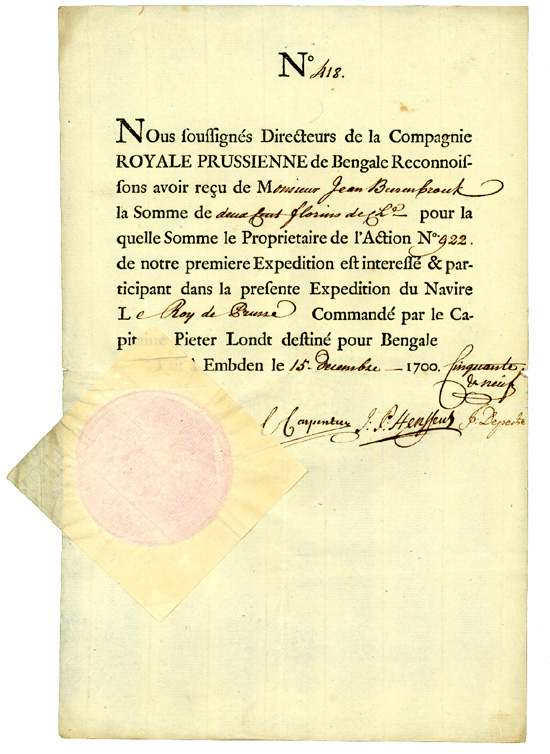 No. 418.
NOus soussignés Directeurs de la Compagnie
ROYALE PRUSSIENNE de Bengale Reconnois-
sons avoir reçu de Monsieur Jean
la Somme de deux Cent florins de pour la
quelle Somme le Proprietaire de l'Action No. 922.
de notre premiere Expedition est interessé & par-
ticipant dans la presente Expedition du Navire
Le Roy de Prusse Commandé par le Ca-
pitaine Pieter Londt destiné pour Bengale
à Embden le 15. Decembre 1700. Cinquante
& neuf